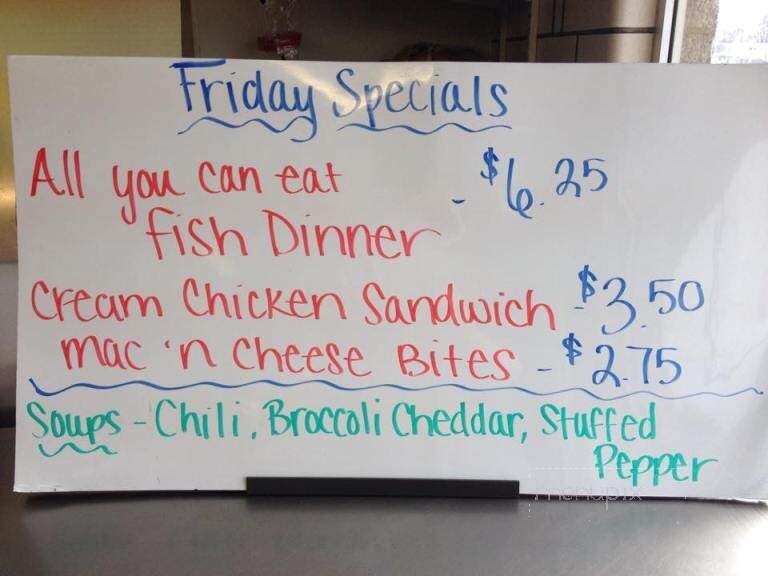 Friday Specials
All you can eat - $6.25
Fish Dinner
Cream Chicken Sandwich - $3.50
Mac 'n Cheese Bites - $2.75
Soups - Chili, Broccoli Cheddar, Stuffed
Pepper
menupix